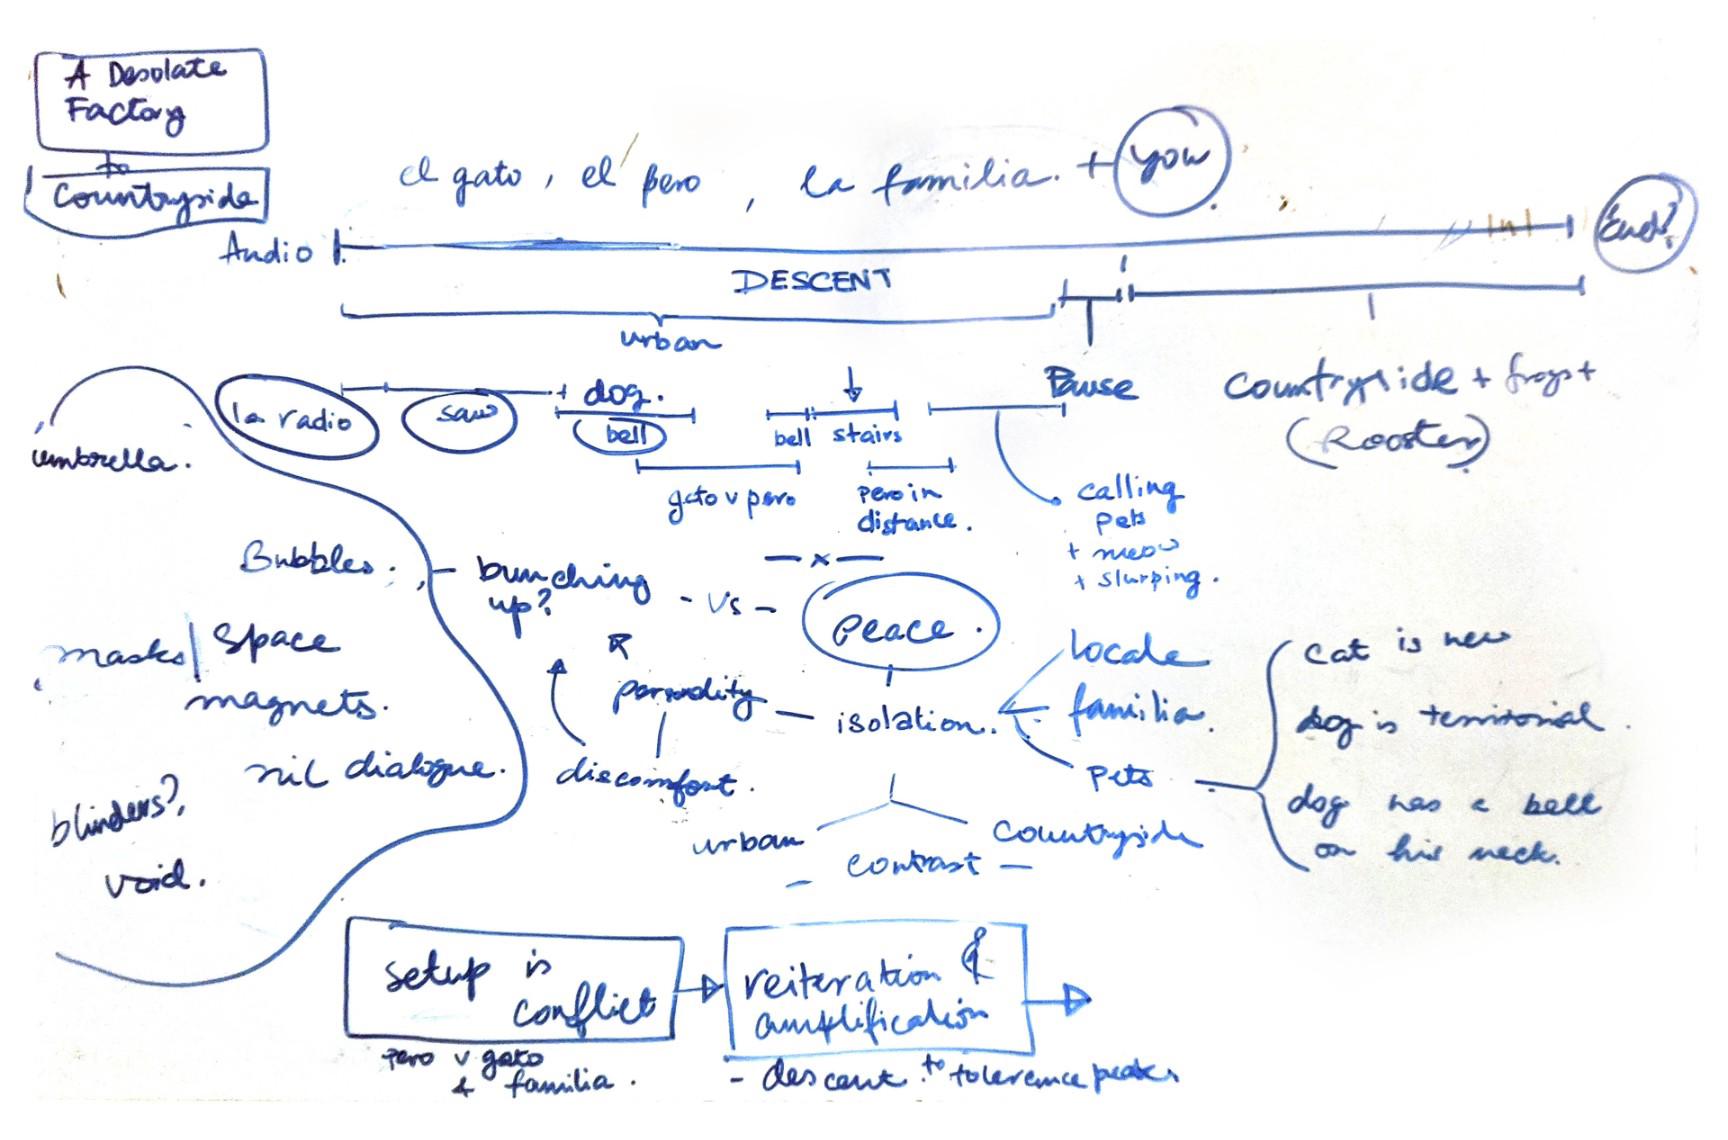 A Desolate
Factory
to
Countryside
el gato, el pero, la familia. + you
Audio
End?
DESCENT
urban
la radio
saw
+ dog.
bell
bell
stairs
Pause
Countryside + frogs +
(Rooster)
umbrella.
gato v pero
pero in
distance.
calling
pets
+ meow
+ slurping.
Bubbles.
- bunching
up?
- vs -
- x -
Peace.
masks/
Space
magnets.
isolation.
locale
familia.
pets
cat is new
dog is territorial.
dog has a bell
on his neck.
nil dialogue.
discomfort.
blinders?,
void.
urban
contrast -
Countryside
setup is
conflict
reiteration &
amplification
pero v gato
& familia.
- descent to tolerence peaks